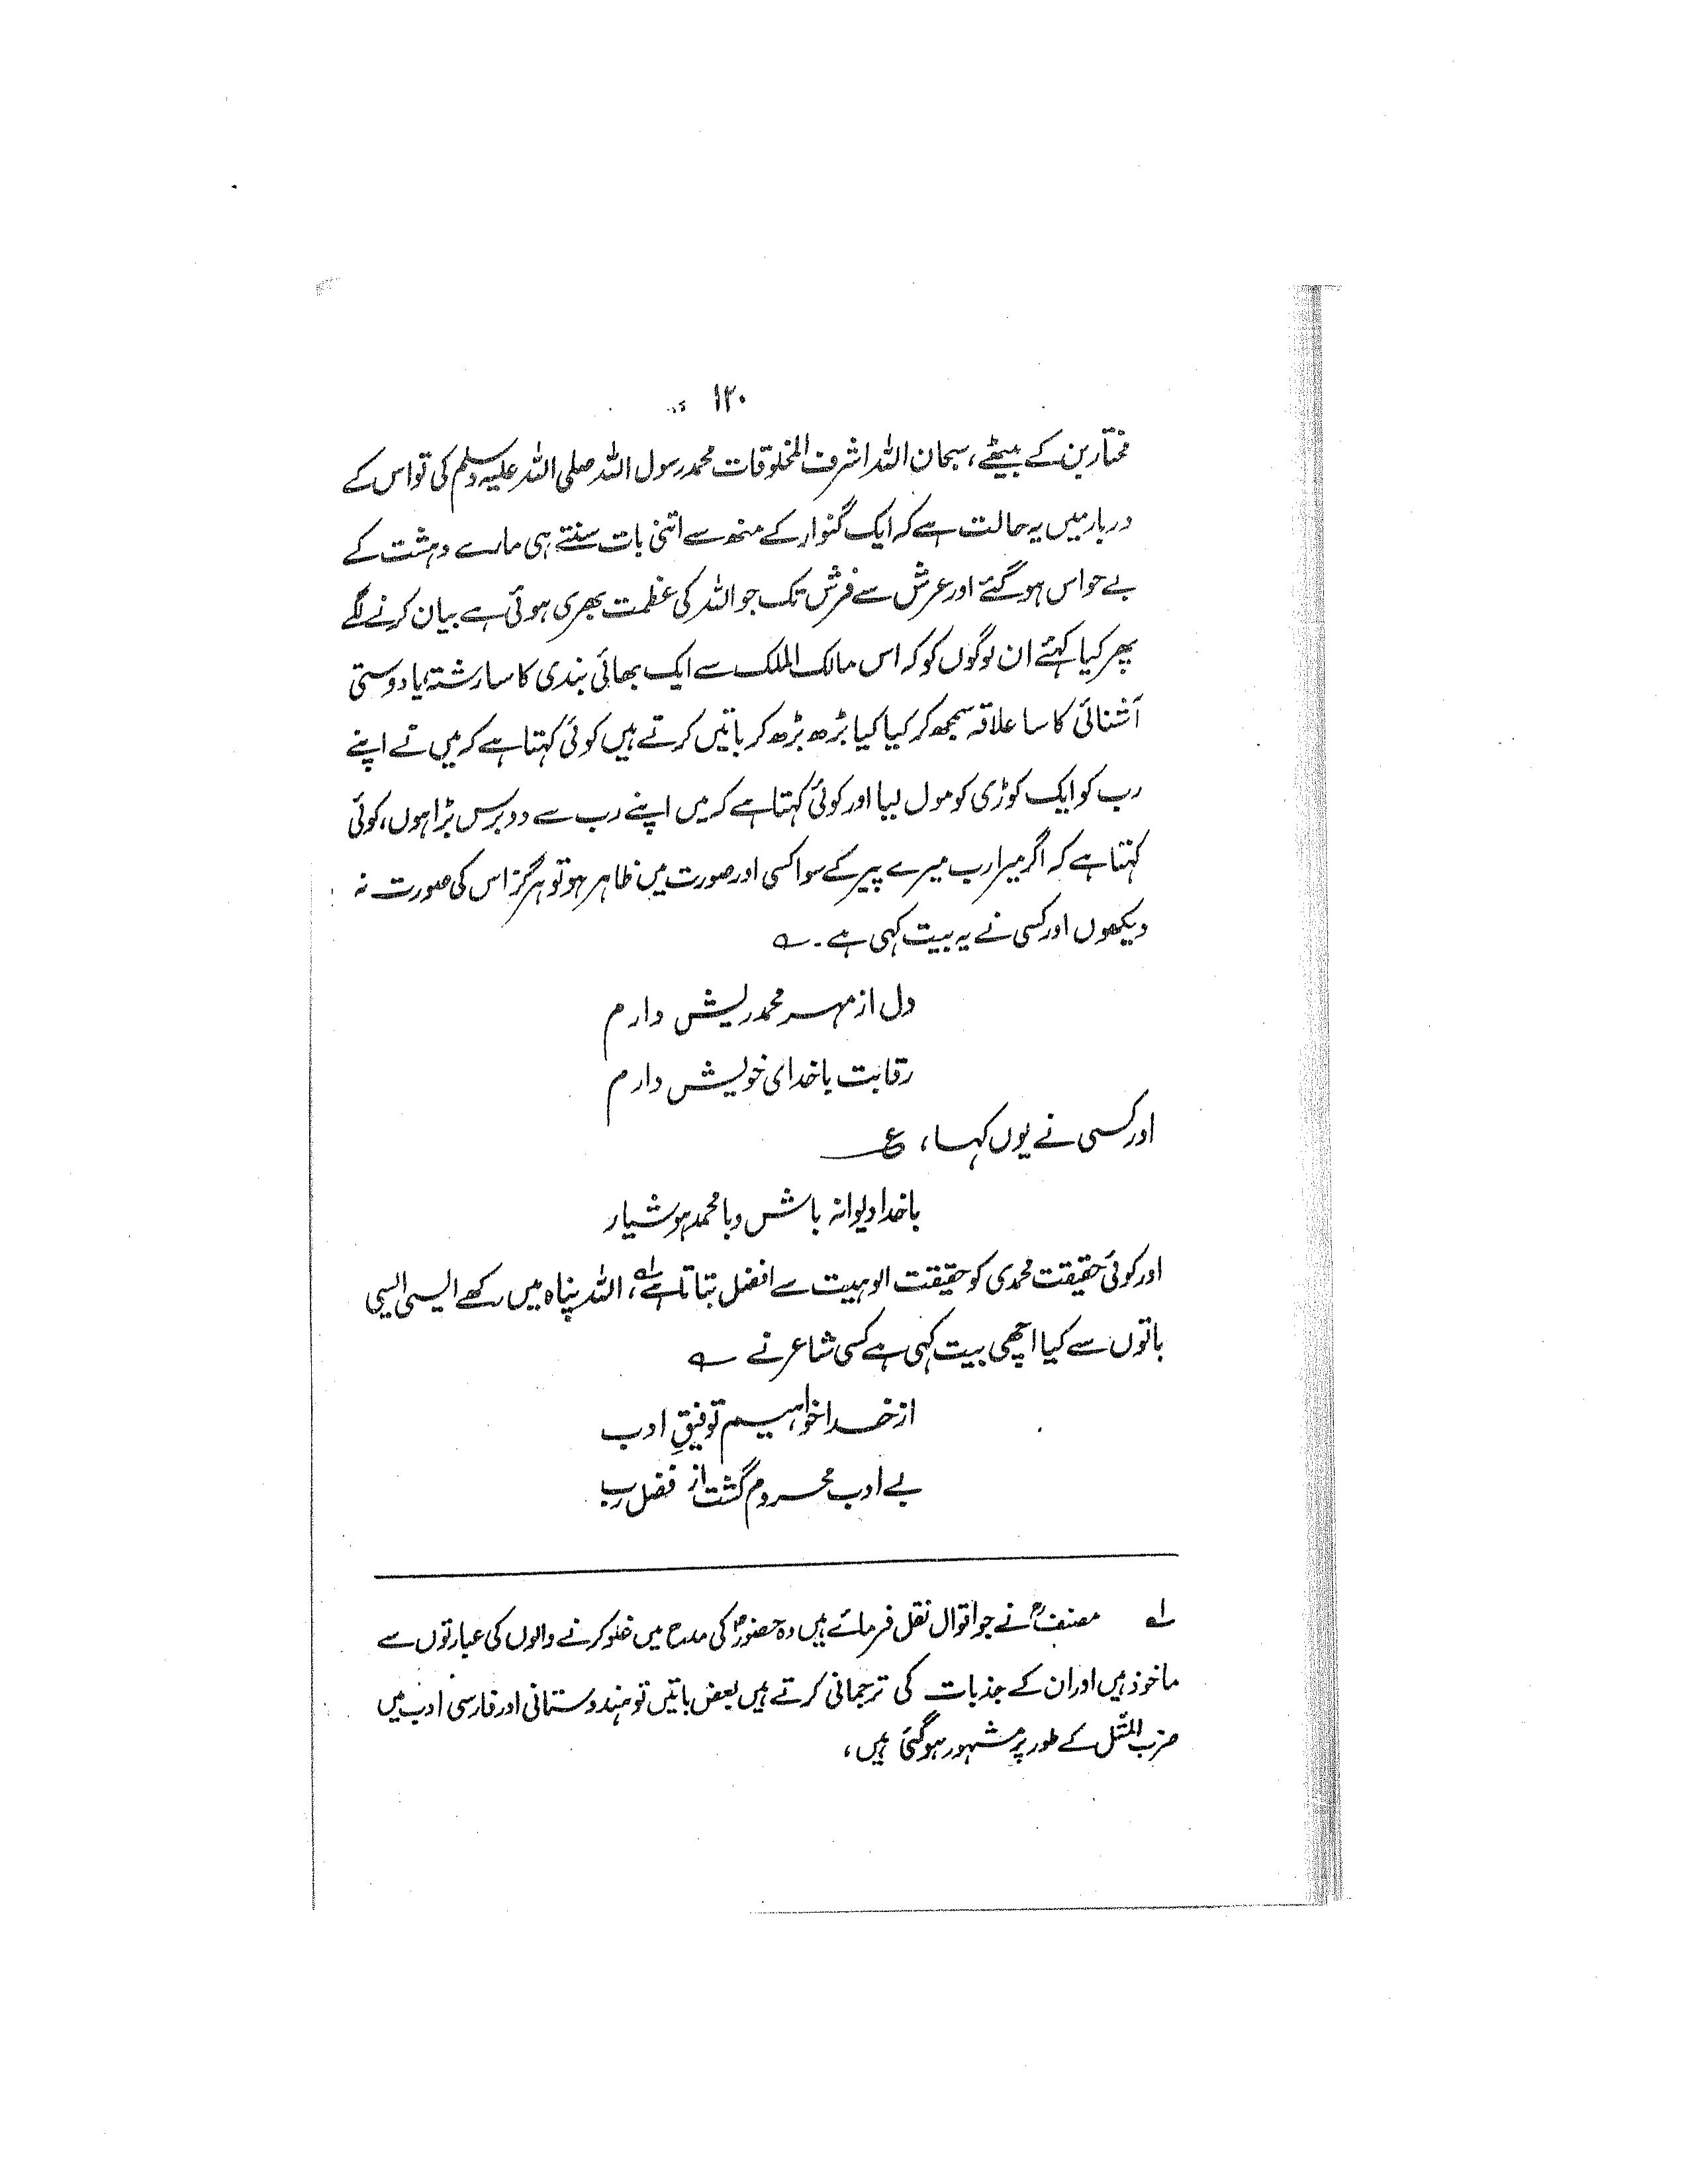 ۱۲۰
مختارین کے بیٹھے، سبحان اللہ اشرف المخلوقات محمد رسول اللہ صلی اللہ علیہ وسلم کی تو اس کے
دربار میں یہ حالت ہے کہ ایک گنوار کے منھ سے اتنی بات سنتے ہی مارے دہشت کے
بے حواس ہو گئے اور عرش سے فرش تک جو اللہ کی عظمت بھری ہوئی ہے بیان کرنے لگے
پھر کیا کہئے ان لوگوں کو کہ اس مالک الملک سے ایک بھائی بندی کا سا رشتہ یا دوستی
آشنائی کا سا علاقہ سمجھ کر کیا کیا بڑھ بڑھ کر باتیں کرتے ہیں کوئی کہتا ہے کہ میں نے اپنے
رب کو ایک کوڑی کو مول لیا اور کوئی کہتا ہے کہ میں اپنے رب سے دو برس بڑا ہوں، کوئی
کہتا ہے کہ اگر میرا رب میرے پیر کے سوا کسی اور صورت میں ظاہر ہو تو ہرگز اس کی صورت نہ
دیکھوں اور کسی نے یہ بیت کہی ہے۔ ؎
دل از مہر محمد ریش دارم
رقابت با خدای خویش دارم
اور کسی نے یوں کہا، ع
با خدا دیوانہ باش و با محمد ہوشیار
اور کوئی حقیقت محمدی کو حقیقت الوہیت سے افضل بتاتا ہے، ؎۱ اللہ پناہ میں رکھے ایسی ایسی
باتوں سے کیا اچھی بیت کہی ہے کسی شاعر نے ؎
از خدا خواہیم توفیقِ ادب
بے ادب محروم گشت از فضل رب
؎۱ مصنفؒ نے جو اقوال نقل فرمائے ہیں وہ حضورؐ کی مدح میں غلو کرنے والوں کی عبارتوں سے
ماخوذ ہیں اور ان کے جذبات کی ترجمانی کرتے ہیں بعض باتیں تو ہندوستانی اور فارسی ادب میں
ضرب المثل کے طور پر مشہور ہو گئی ہیں،